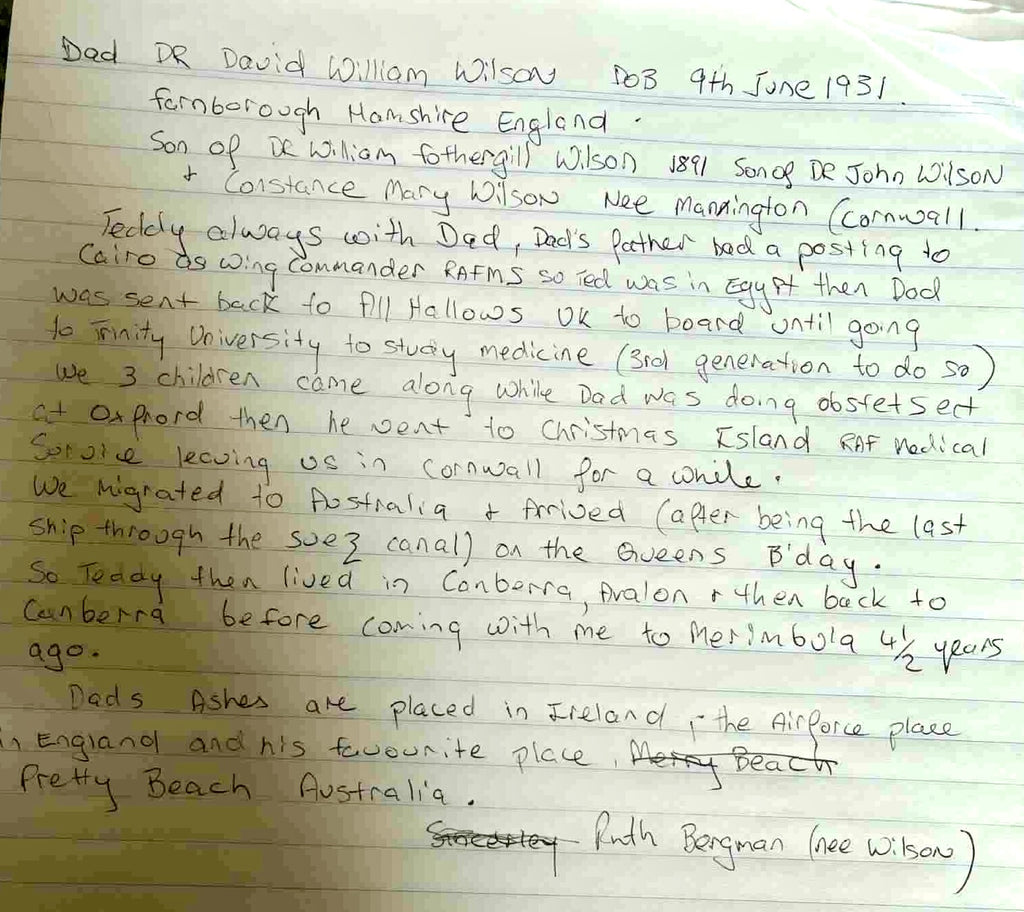 Dad DR David William Wilson DoB 9th June 1931.
farnborough Hamshire England.
Son of DR William fothergill Wilson 1891 Son of DR John Wilson
+ Constance Mary Wilson Nee Mannington (Cornwall.
Teddy always with Dad, Dad's father had a posting to
Cairo as wing commander RAFMS so Ted was in Egypt then Dad
was sent back to All Hallows UK to board until going
to Trinity University to study medicine (3rd generation to do so)
We 3 children came along while Dad was doing obstets ect
at Oxford then he went to Christmas Island RAF Medical
Service leaving us in Cornwall for a while.
We Migrated to Australia + Arrived (after being the last
ship through the suez canal) on the Queens B'day.
So Teddy then lived in Canberra, Avalon + then back to
Canberra before coming with me to Merimbula 4½ years
ago.
Dads Ashes are placed in Ireland, the Airforce place
in England and his favourite place, Merry Beach
Pretty Beach Australia.
Ruth Bergman (nee Wilson)